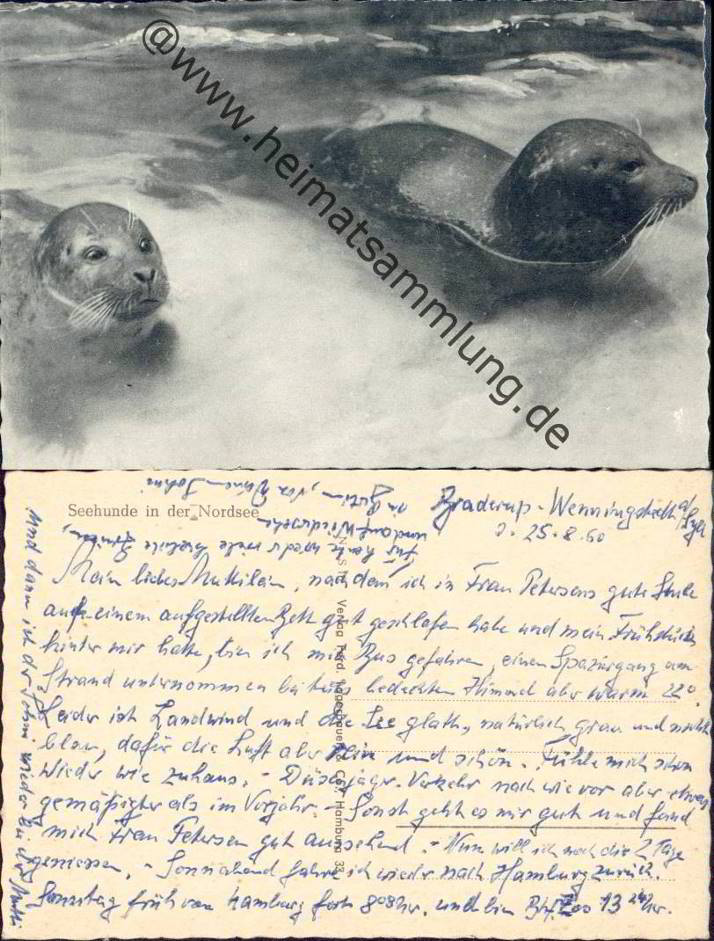 @www.heimatsammlung.de
Seehunde in der Nordsee
Braderup-Wenningstedt a/Sylt
d. 25.8.60
Mein liebes Muttilein, nachdem ich in Frau Petersens gute Stube
auf einem aufgestellten Bett gut geschlafen habe und mein Frühstück
hinter mir hatte, bin ich mit Bus gefahren, einen Spaziergang am
Strand unternommen bei bedeckten Himmel aber warm 22°.
Leider ist Landwind und die See glatt, natürlich grau und nicht
blau, dafür die Luft aber rein und schön. Fühle mich schon
wieder wie zuhaus. - Düsenjäger-Verkehr nach wie vor aber etwas
gemäßigter als im Vorjahr. - Sonst geht es mir gut und fand
mich Frau Petersen gut aussehend. - Nun will ich noch die 2 Tage
geniessen. - Sonnabend fahre ich wieder nach Hamburg zurück.
Sonntag früh von Hamburg fort 8 Uhr, und bin 13 Uhr.
Und dann ist der Sohni wieder bei der Mutti
Für heute wieder viele herzliche Grüße,
und auf Wiedersehn
in von Deinem Sohni
Verlag Ferd. Lagerbauer & Co., Hamburg 33